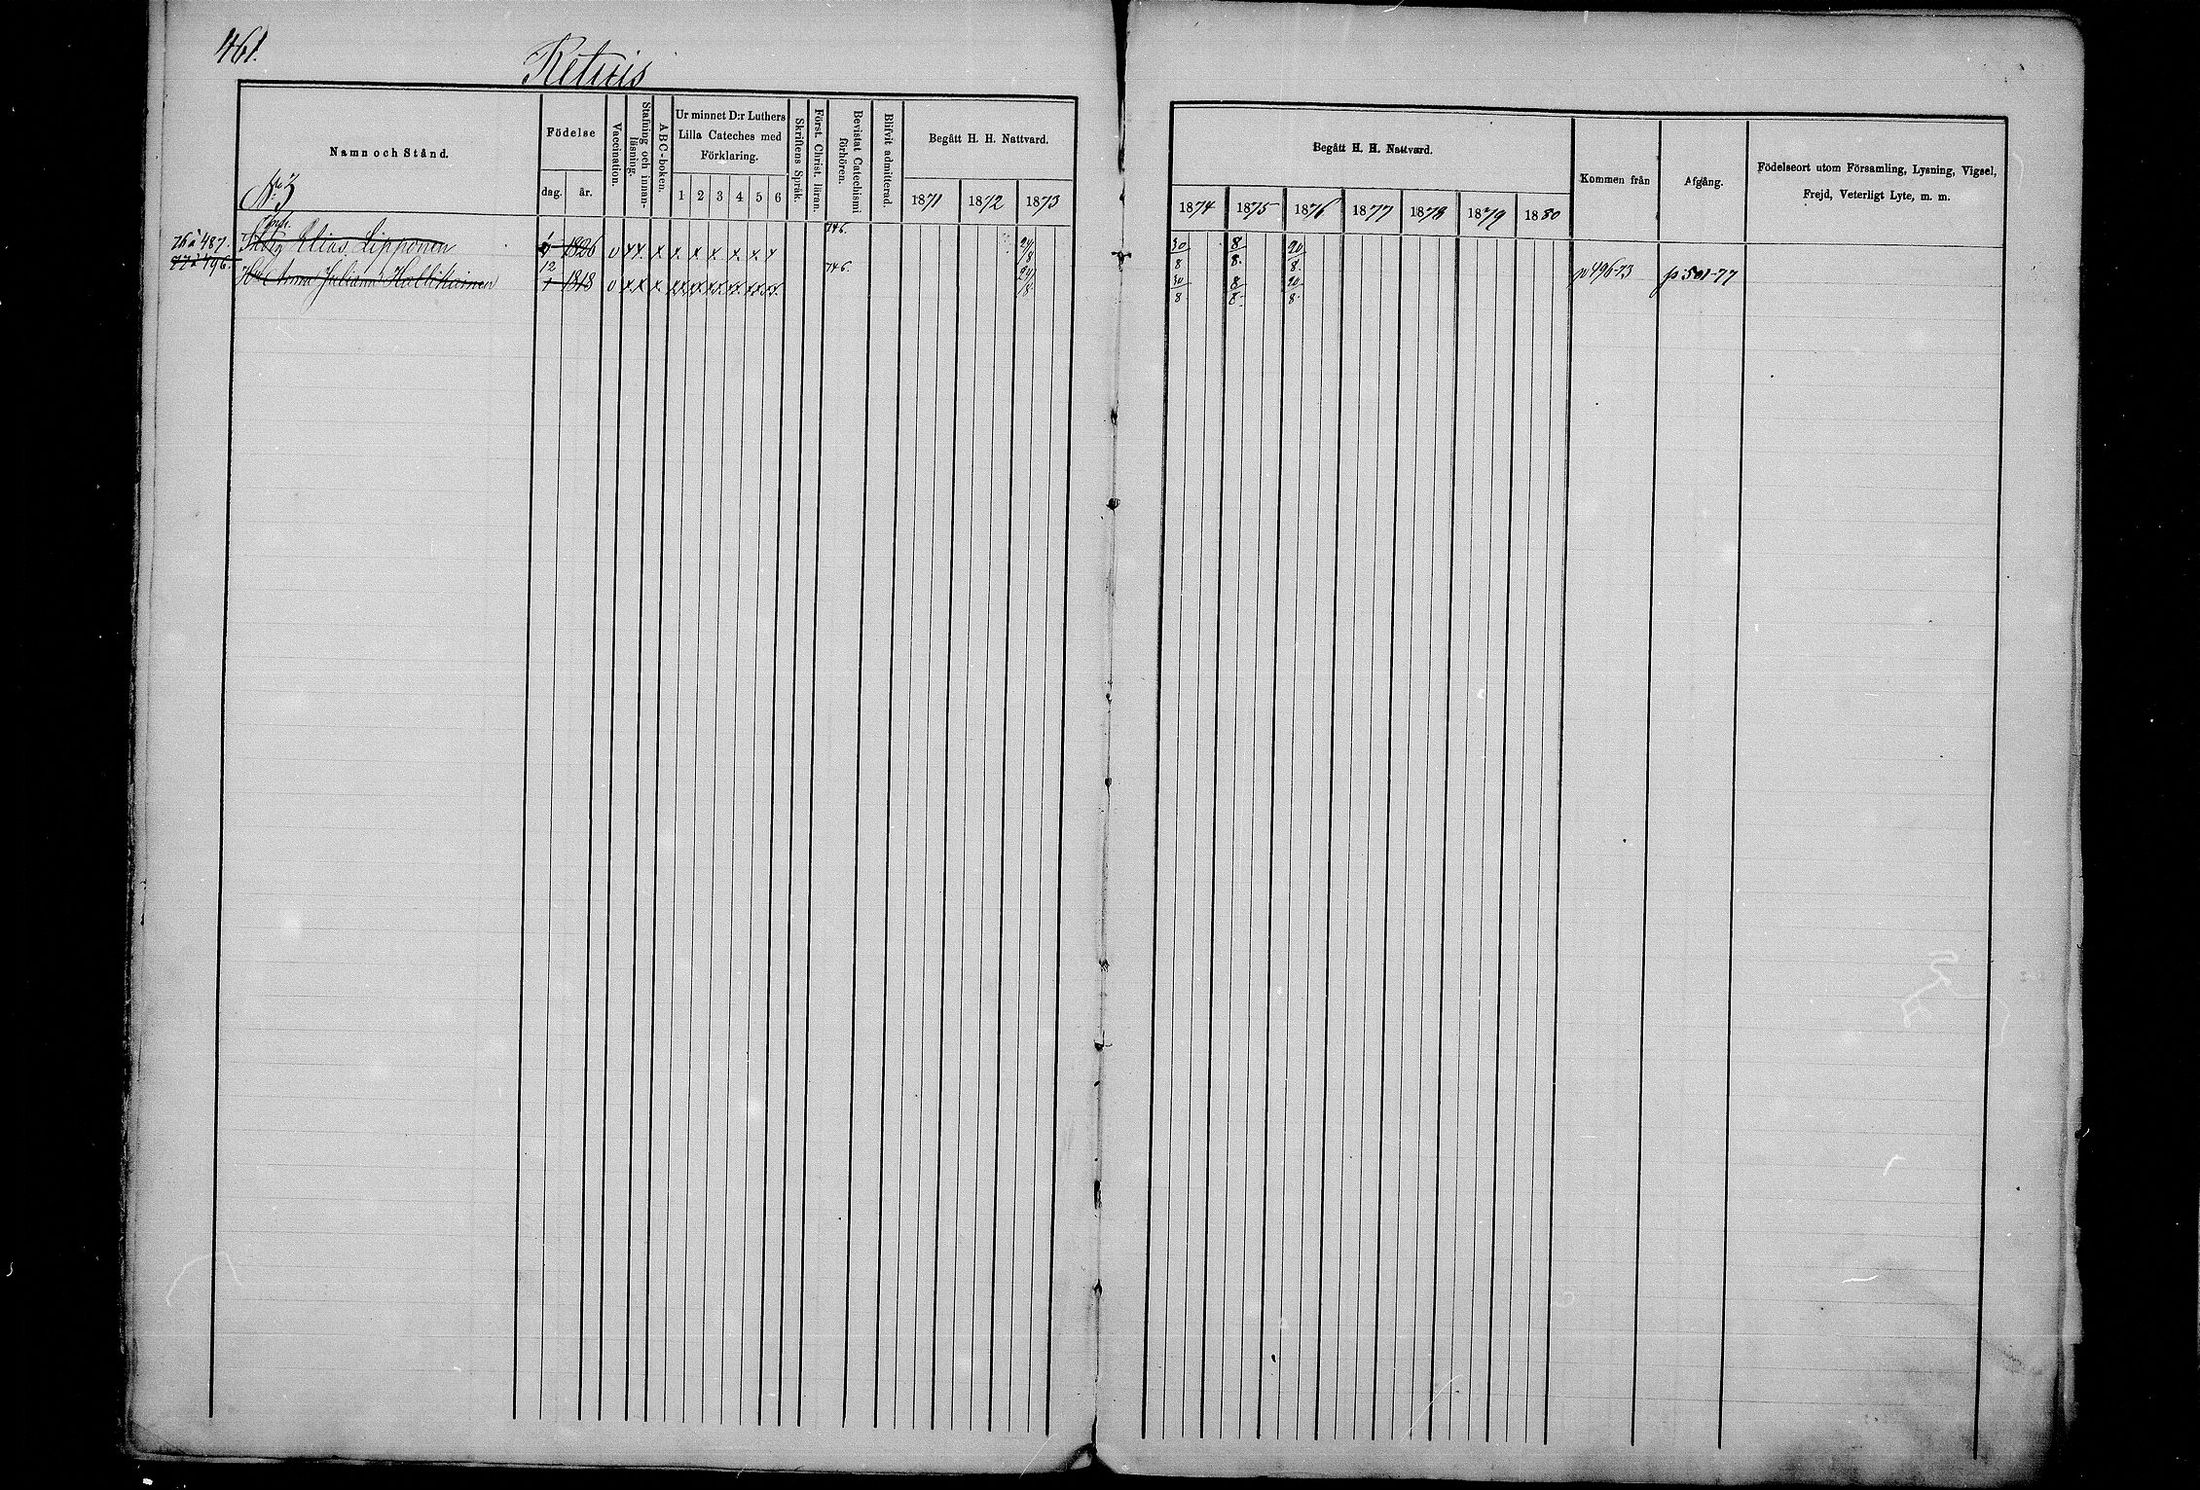 461.
Retuis
Namn och Stånd.
Födelse
dag. år.
Vaccination.
Stafning och innanläsning.
ABC-boken.
Ur minnet D:r Luthers Lilla Cateches med Förklaring.
1 2 3 4 5 6
Skriftens Språk.
Först. Christ. läran.
Bevistat Catechismi förhören.
Blifvit admitterad.
Begått H. H. Nattvard.
1871 1872 1873
Begått H. H. Nattvard.
1874 1875 1876 1877 1878 1879 1880
Kommen från
Afgång.
Födelseort utom Församling, Lysning, Vigsel,
Frejd, Veterligt Lyte, m. m.
No 3
76 à 487. Elias Lipponen 1826 746. 24/8 30/8 8/8. 20/8.
77 à 496. Anna Juliana 12/1 1818 746. 24/8 30/8 8/8. 20/8. p 496-73 p 501-77